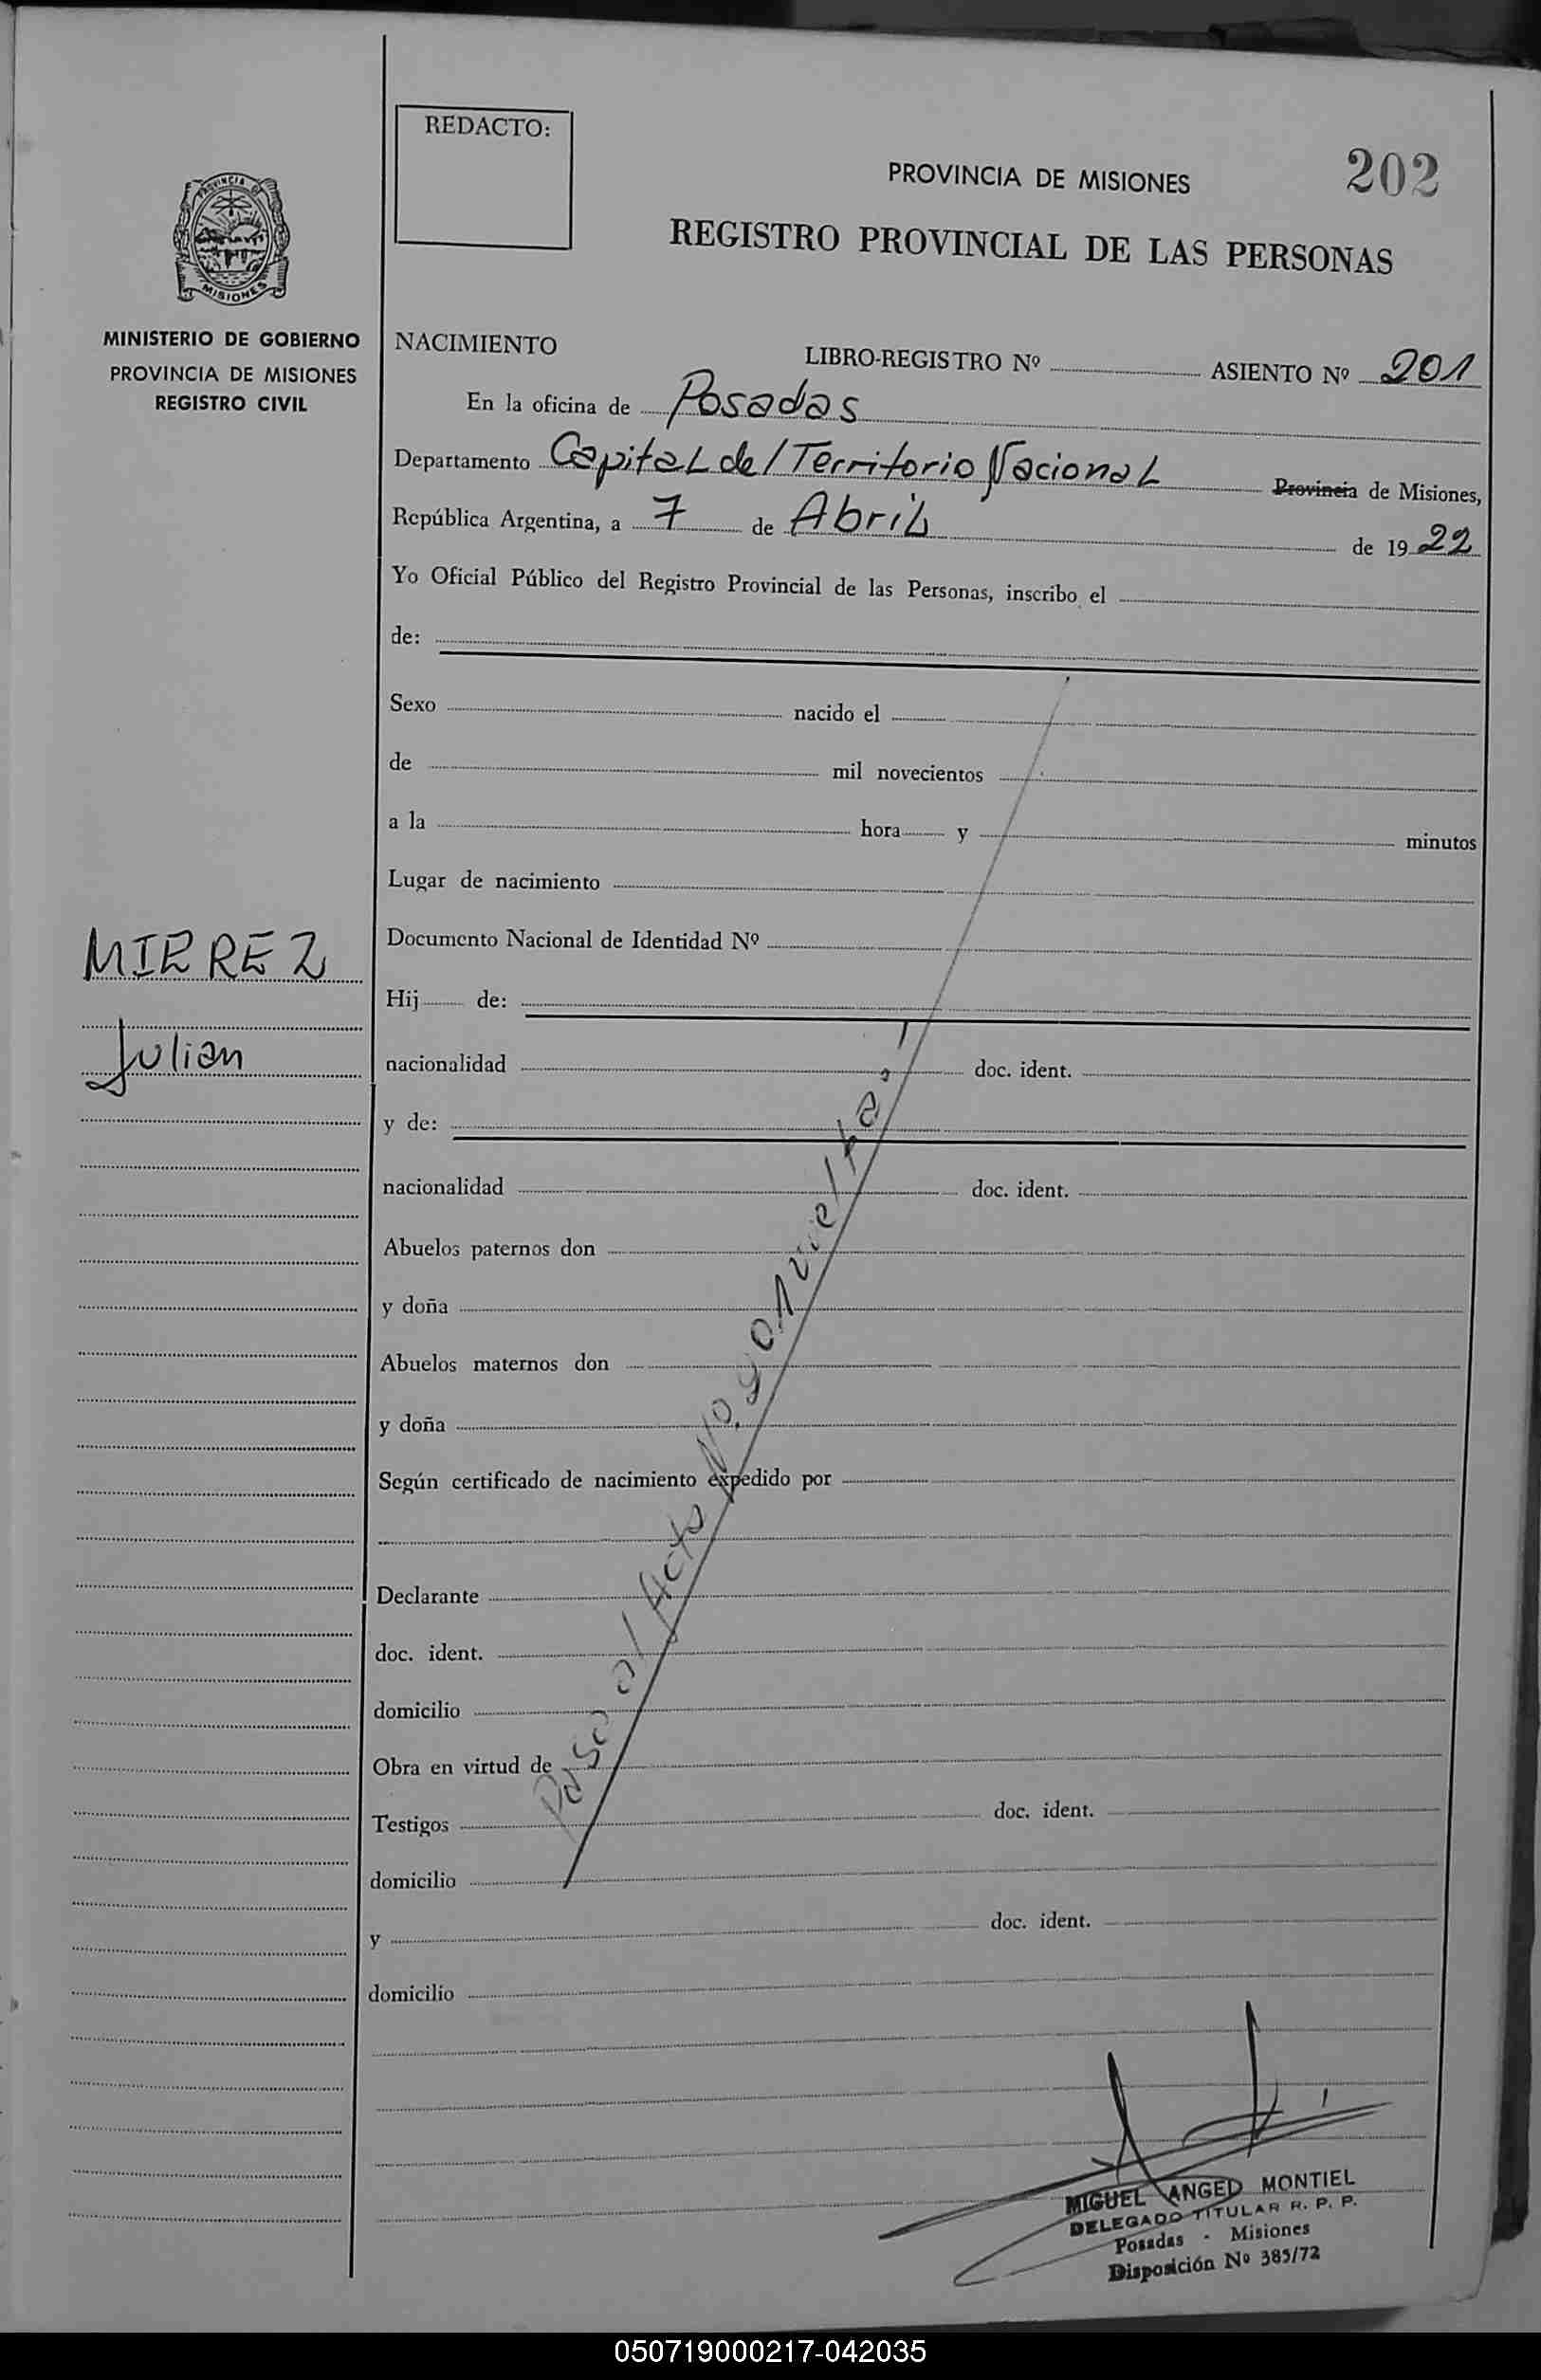 REDACTO:
PROVINCIA DE MISIONES
202
REGISTRO PROVINCIAL DE LAS PERSONAS
PROVINCIA DE
MISIONES
MINISTERIO DE GOBIERNO
PROVINCIA DE MISIONES
REGISTRO CIVIL
MIEREZ
Julian
NACIMIENTO LIBRO-REGISTRO Nº ASIENTO Nº 201
En la oficina de Posadas
Departamento Capital del Territorio Nacional Provincia de Misiones,
República Argentina, a 7 de Abril de 1922
Yo Oficial Público del Registro Provincial de las Personas, inscribo el
de:
Sexo nacido el
de mil novecientos
a la hora y minutos
Lugar de nacimiento
Documento Nacional de Identidad Nº
Hij de:
nacionalidad doc. ident.
y de:
nacionalidad doc. ident.
Abuelos paternos don
y doña
Abuelos maternos don
y doña
Según certificado de nacimiento expedido por
Declarante
doc. ident.
domicilio
Obra en virtud de
Testigos doc. ident.
domicilio
y doc. ident.
domicilio
Paso al Acta No. vuelta
MIGUEL ANGEL MONTIEL
DELEGADO TITULAR R. P. P.
Posadas - Misiones
Disposición Nº 385/72
050719000217-042035